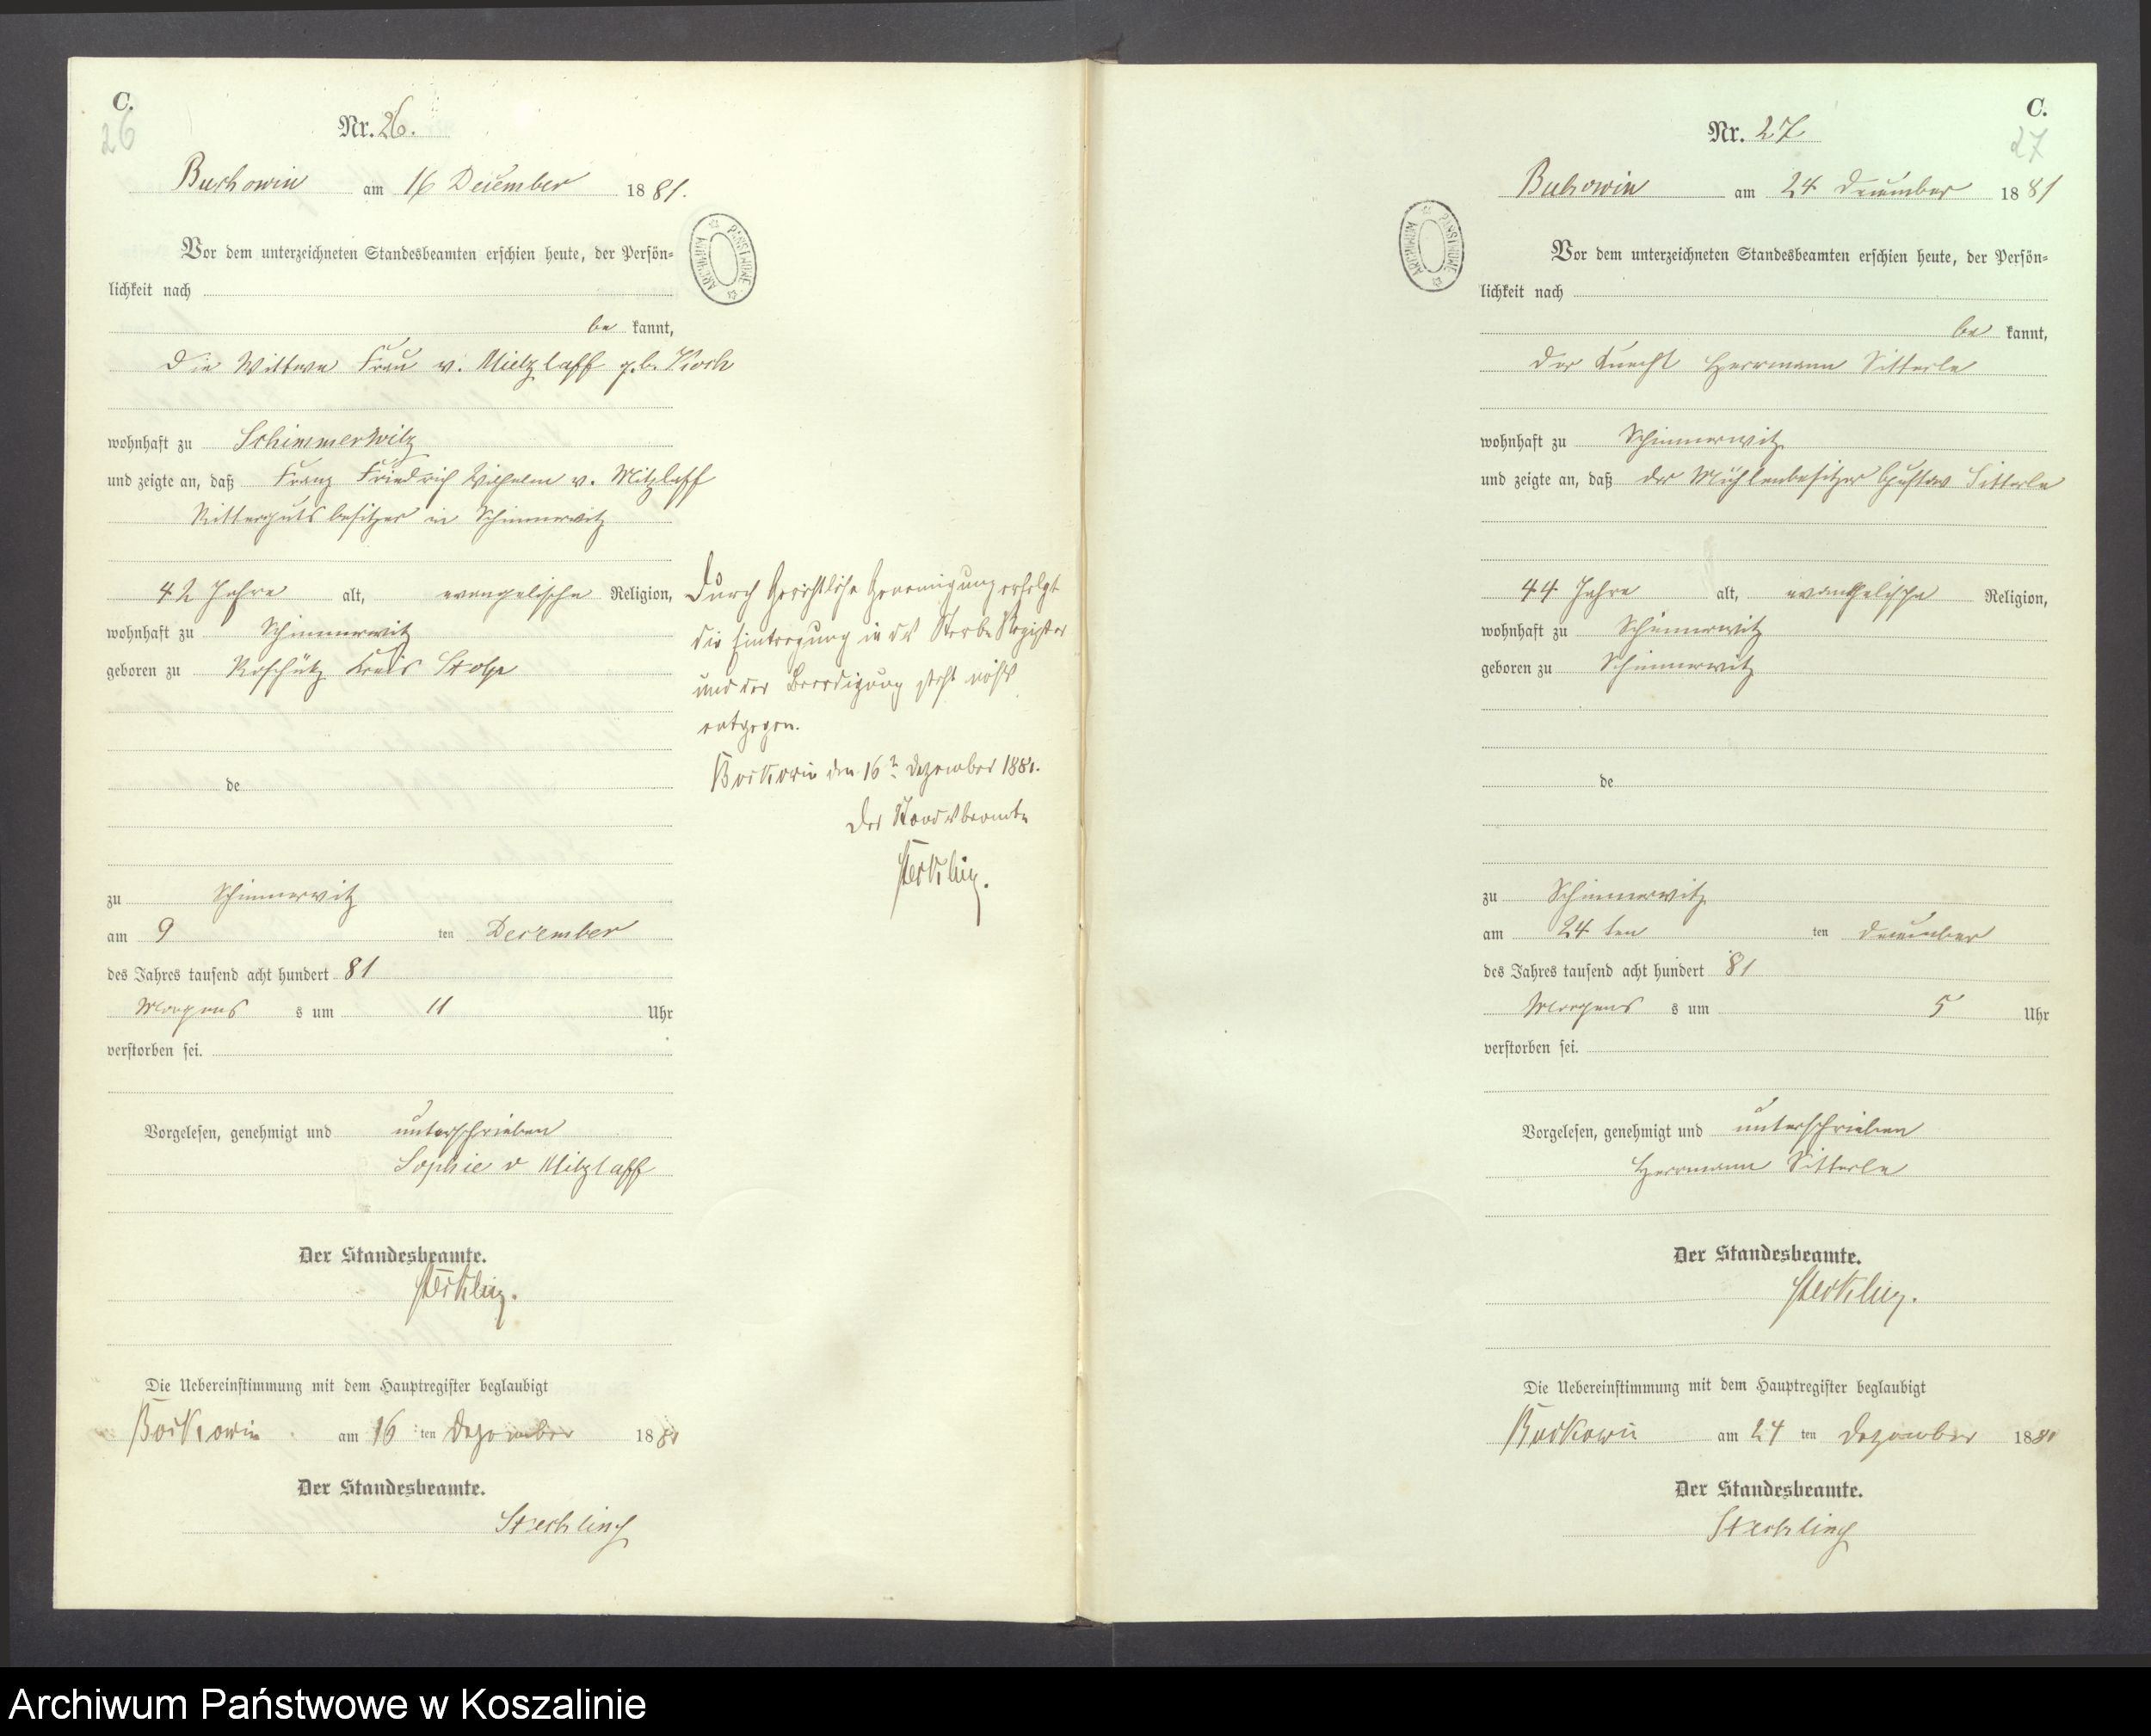 C.
26
Nr. 26.
Buckowin am 16 December 1881.
Vor dem unterzeichneten Standesbeamten erschien heute, der Persön-
lichkeit nach
be kannt,
die Wittwe Frau v. Mitzlaff geb. Koch
wohnhaft zu Schimmerwitz
und zeigte an, daß Franz Friedrich Wilhelm v. Mitzlaff
Rittergutsbesitzer in Schimmerwitz
42 Jahre alt, evangelische Religion,
wohnhaft zu Schimmerwitz
geboren zu Roschütz Kreis Stolp
de
zu Schimmerwitz
am 9 ten December
des Jahres tausend acht hundert 81
Morgens s um 11 Uhr
verstorben sei.
Vorgelesen, genehmigt und unterschrieben
Sophie v Mitzlaff
Der Standesbeamte.
Sterkling.
Die Uebereinstimmung mit dem Hauptregister beglaubigt
Buckowin am 16 ten Dezember 1881
Der Standesbeamte.
Sterkling
ARCHIWUM PAŃSTWOWE
Durch Gerichtliche Genemigung erfolgt
die Eintragung in das Sterbe Register
und der Beerdigung steht nichts
entgegen.
Buckowin den 16 Dezember 1881.
Der Standesbeamte
Sterkling.
C.
27
Nr. 27
Buckowin am 24 December 1881
ARCHIWUM PAŃSTWOWE
Vor dem unterzeichneten Standesbeamten erschien heute, der Persön-
lichkeit nach
be kannt,
der Knecht Herrmann Sitterle
wohnhaft zu Schimmerwitz
und zeigte an, daß der Mühlenbesitzer Gustav Sitterle
44 Jahre alt, evangelische Religion,
wohnhaft zu Schimmerwitz
geboren zu Schimmerwitz
de
zu Schimmerwitz
am 24 ten ten December
des Jahres tausend acht hundert 81
Morgens s um 5 Uhr
verstorben sei.
Vorgelesen, genehmigt und unterschrieben
Herrmann Sitterle
Der Standesbeamte.
Sterkling.
Die Uebereinstimmung mit dem Hauptregister beglaubigt
Buckowin am 24 ten Dezember 1881
Der Standesbeamte.
Sterkling
Archiwum Państwowe w Koszalinie